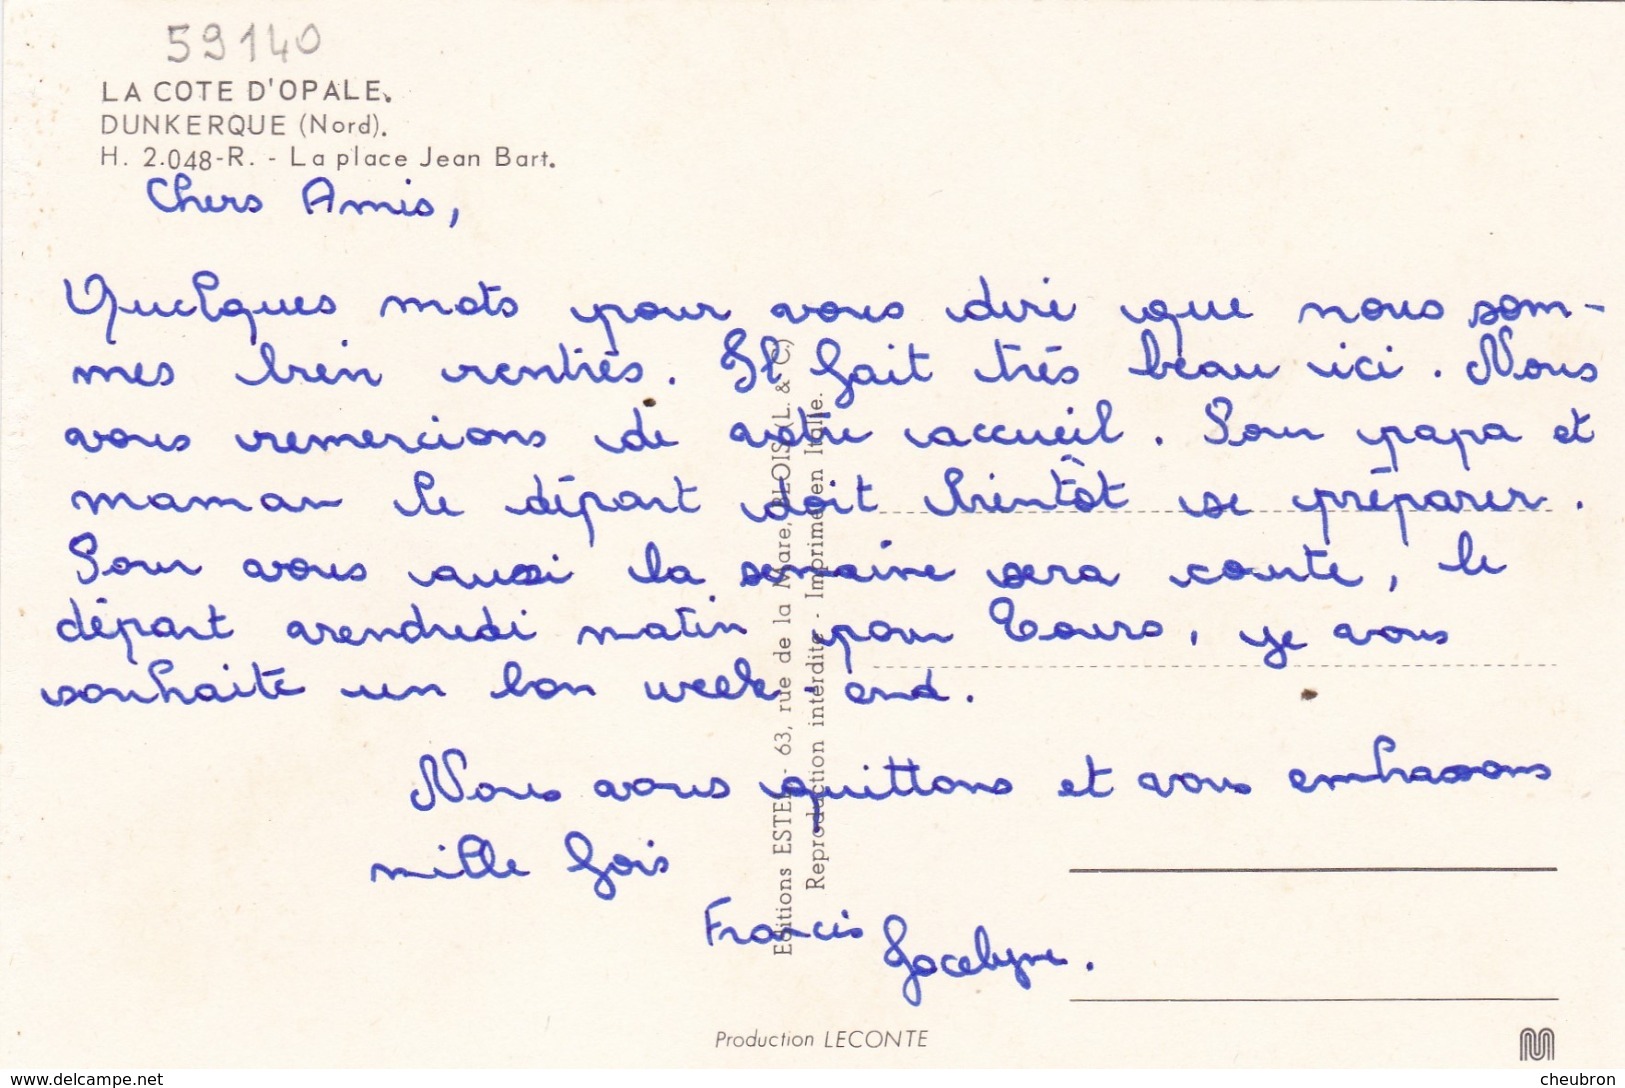 59140
LA COTE D'OPALE.
DUNKERQUE (Nord).
H. 2.048-R. - La place Jean Bart.
Chers Amis,
Quelques mots pour vous dire que nous som-
mes bien rentrés. Il fait très beau ici. Nous
vous remercions de votre accueil. Pour papa et
maman le départ doit bientôt se préparer.
Pour vous aussi la semaine sera courte, le
départ vendredi matin pour Tours, je vous
souhaite un bon week-end.
Nous vous quittons et vous embrassons
mille fois
Francis
Jocelyne.
Editions ESTEL - 63, rue de la Mare, BLOIS (L. & C.)
Reproduction interdite - Imprimé en Italie.
Production LECONTE
www.delcampe.net
cheubron